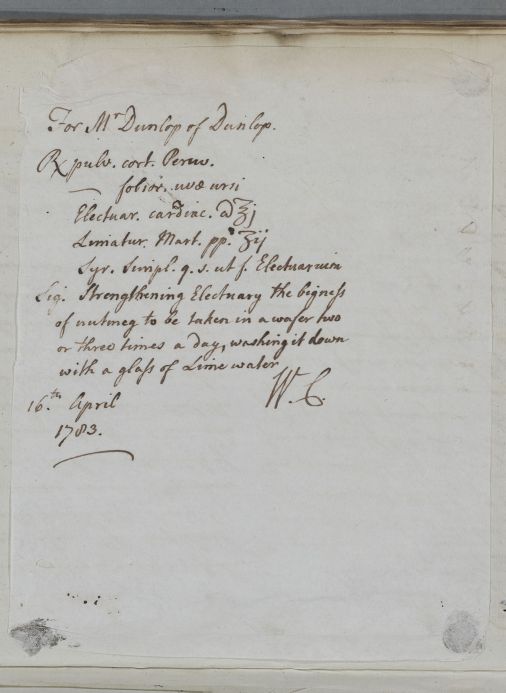 For Mr Dunlop of Dunlop.
℞ pulv. cort. Peruv.
— folior. uvæ ursi
Electuar. cardiac. a ℥j
Limatur. Mart. pp. ʒij
Syr. Simpl. q. s. ut f. Electuarium
Sig. Strengthening Electuary the bigness
of nutmeg to be taken in a wafer two
or three times a day, washing it down
with a glass of Lime water
W. C.
16.th April
1783.